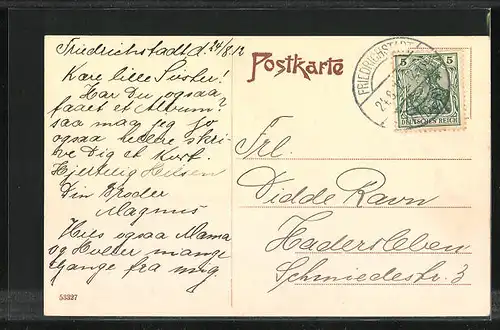 Friedrichstadt d. 24/8 12
Kære lille Søster!
Har Du ogsaa
faaet et Album?
saa maa jeg jo
ogsaa hellere skri-
ve Dig et Kort.
Hjertelig Hilsen
Din Broder
Magnus
Hils ogsaa Mama
og mange
Gange fra mig.
53327
Postkarte
FRIEDRICHSTADT
5 5
DEUTSCHES REICH
Frl.
Didde Ravn
Hadersleben
Schmiedestr. 3